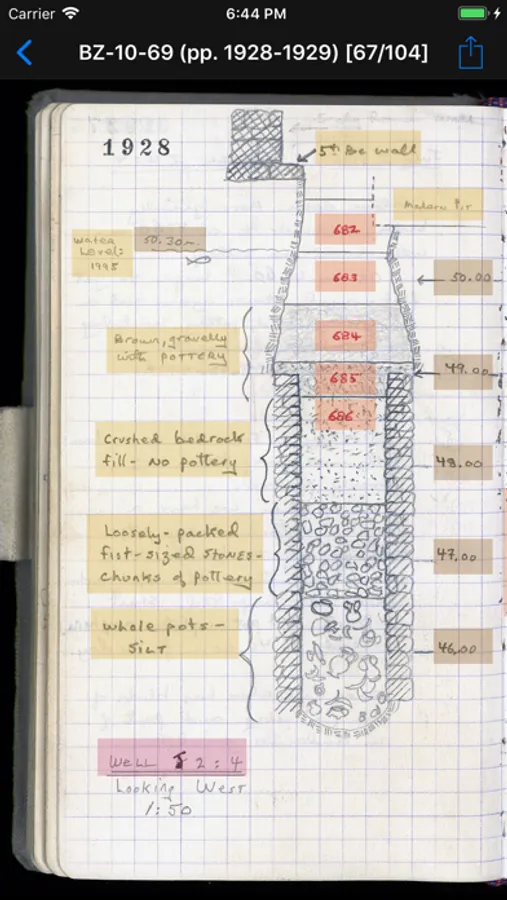 Carrier
6:44 PM
BZ-10-69 (pp. 1928-1929) [67/104]
1928
5th BC wall
Modern Pit
682
Water
Level:
1995
50.30
683
50.00
Brown, gravelly
with POTTERY
684
49.00
685
686
Crushed bedrock
fill - No pottery
48.00
Loosely-packed
fist-sized STONES-
Chunks of pottery
47.00
whole pots -
SILT
46.00
WELL J 2 : 4
Looking West
1:50